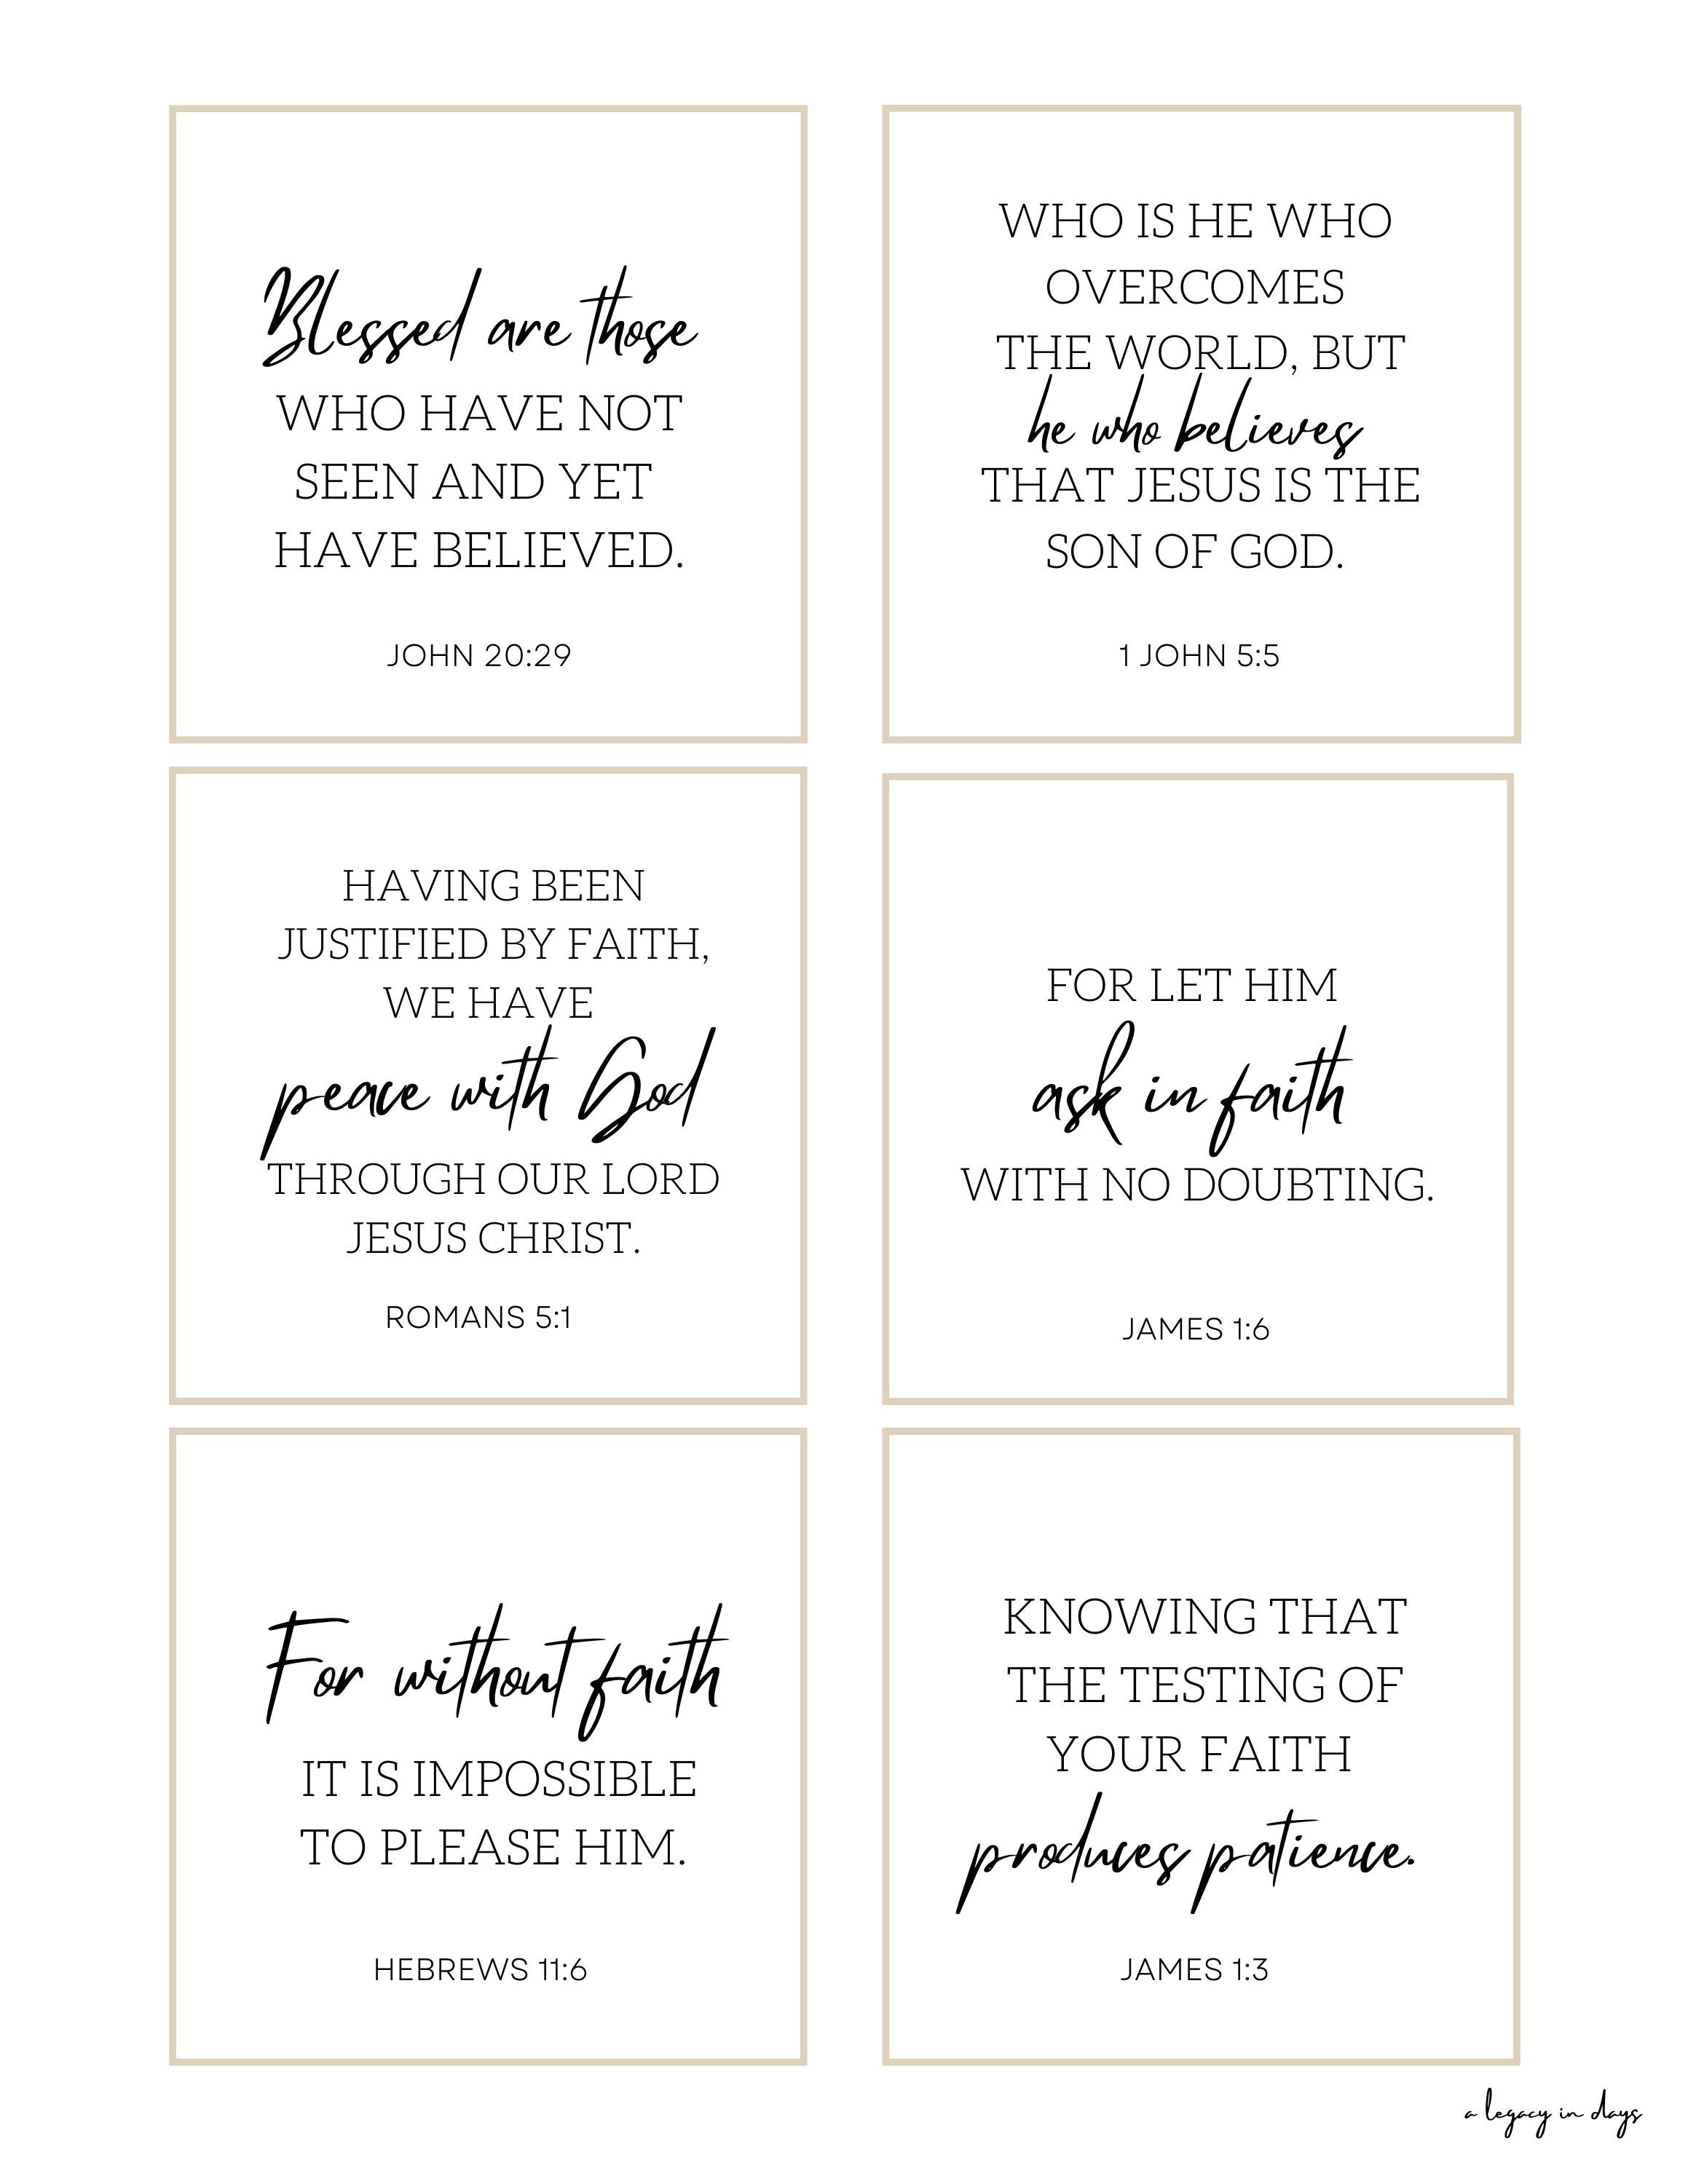 Blessed are those
WHO HAVE NOT
SEEN AND YET
HAVE BELIEVED.
JOHN 20:29
WHO IS HE WHO
OVERCOMES
THE WORLD, BUT
he who believes
THAT JESUS IS THE
SON OF GOD.
1 JOHN 5:5
HAVING BEEN
JUSTIFIED BY FAITH,
WE HAVE
peace with God
THROUGH OUR LORD
JESUS CHRIST.
ROMANS 5:1
FOR LET HIM
ask in faith
WITH NO DOUBTING.
JAMES 1:6
For without faith
IT IS IMPOSSIBLE
TO PLEASE HIM.
HEBREWS 11:6
KNOWING THAT
THE TESTING OF
YOUR FAITH
produces patience.
JAMES 1:3
a legacy in days